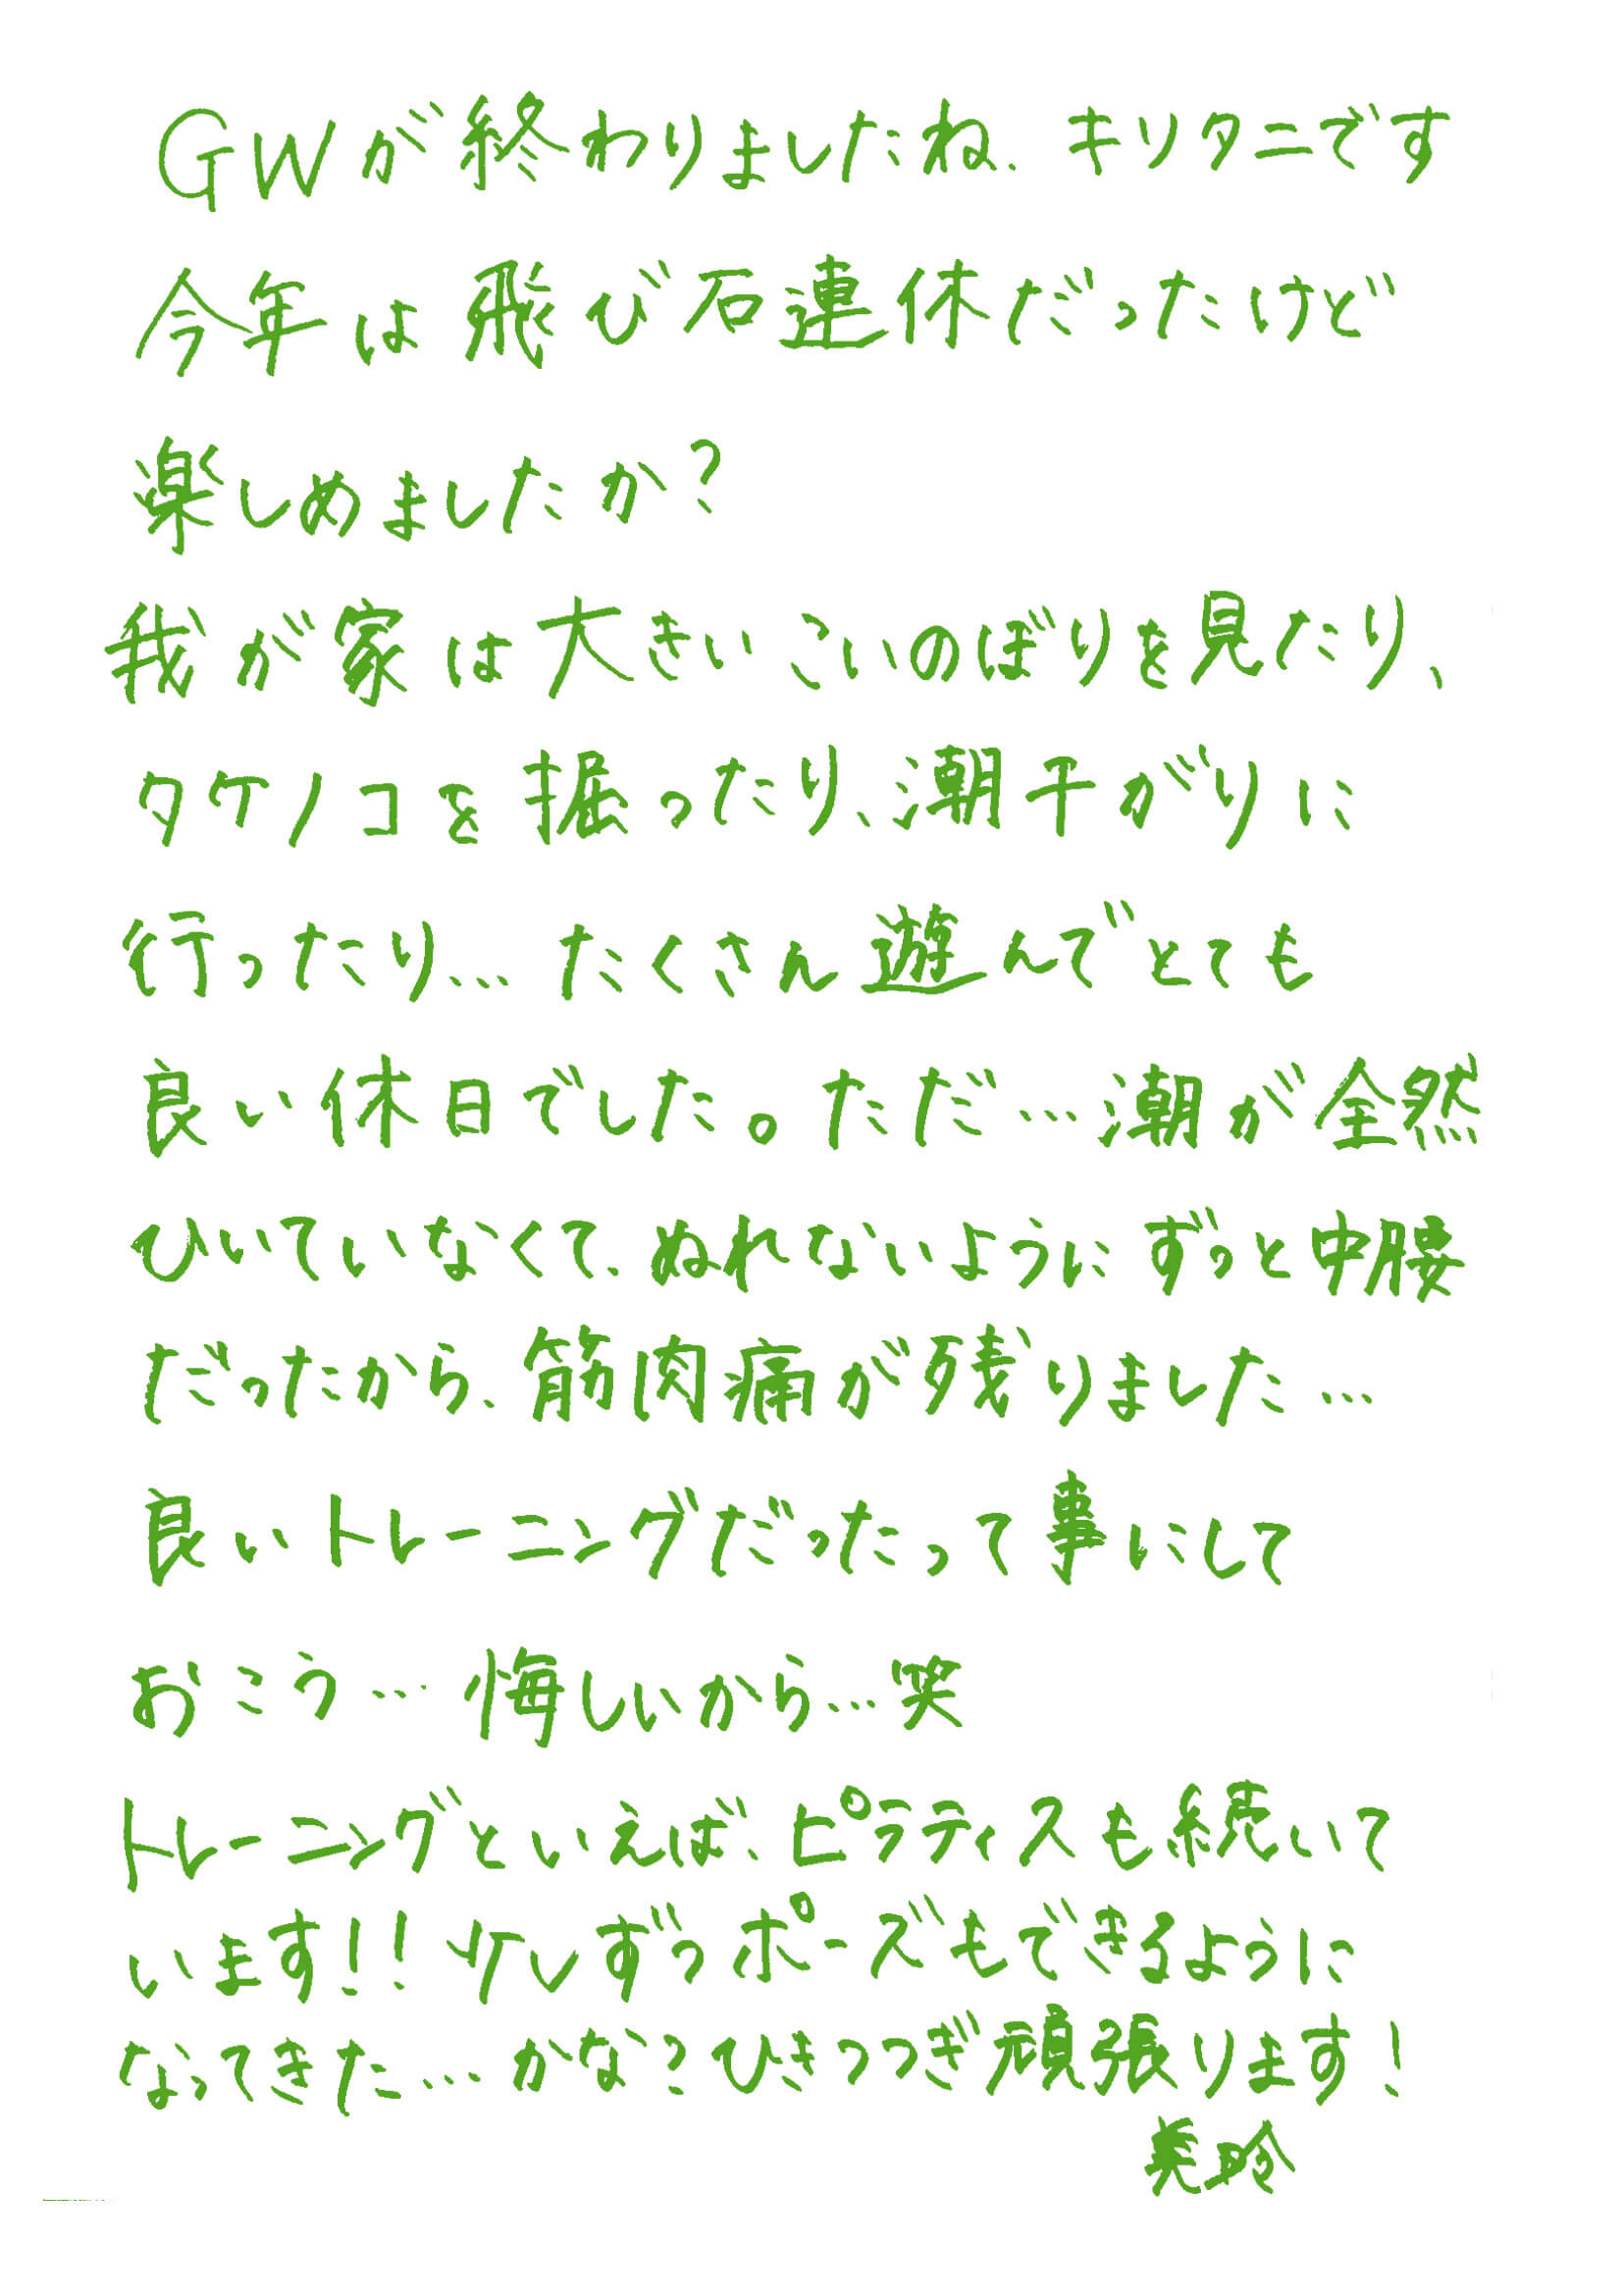 GWが終わりましたね、キリタニです
今年は飛び石連休だったけど
楽しめましたか?
我が家は大きいこいのぼりを見たり、
タケノコを掘ったり、潮干がりに
行ったり… たくさん遊んでとても
良い休日でした。ただ…潮が全然
ひいていなくて、ぬれないようにずっと中腰
だったから、筋肉痛が残りました…
良いトレーニングだったって事にして
おこう… 悔しいから…笑
トレーニングといえば、ピラティスも続いて
います!! 少しずつポーズもできるように
なってきた…かな? ひきつつぎ頑張ります!